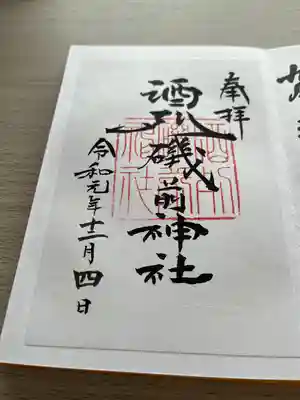 奉拝
酒列磯前神社
令和元年十一月四日